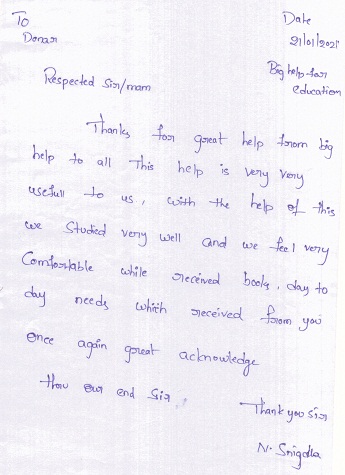 To
Donar
Date
21/01/2021
Respected Sir/mam
Big help for
education
Thanks for great help from big
help to all This help is very very
usefull to us, with the help of this
we studied very well and we feel very
Comfortable while received books, day to
day needs which received from you
once again great acknowledge
our end Sir,
Thank you sir
N.